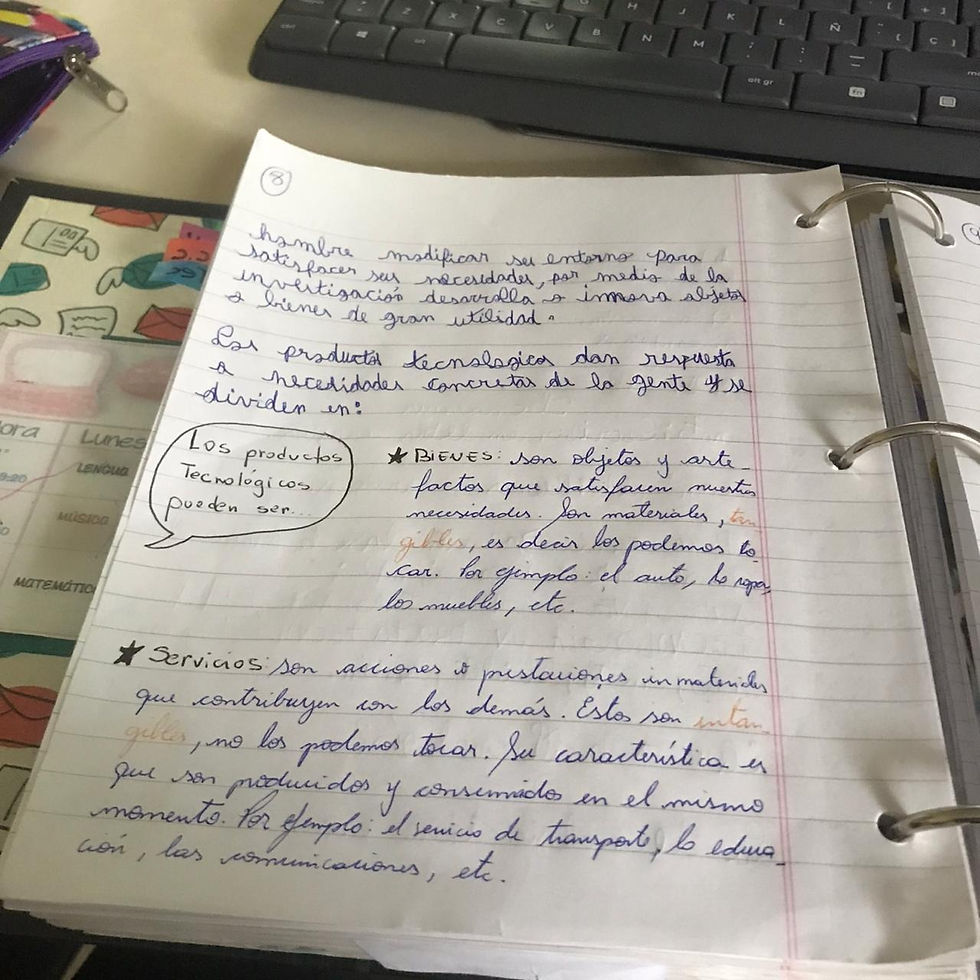 8
hombre modificar su entorno para
satisfacer sus necesidades, por medio de la
investigación desarrolla o innova objetos
o bienes de gran utilidad.
Los productos tecnologicos dan respuesta
a necesidades concretas de la gente y se
dividen en:
Los productos
Tecnológicos
pueden ser...
★ BIENES: son objetos y arte-
factos que satisfacen nuestras
necesidades. Son materiales, tan
gibles, es decir los podemos to
car. Por ejemplo: el auto, la ropa,
los muebles, etc.
★ Servicios: son acciones o prestaciones inmateriales
que contribuyen con los demás. Estos son intan
gibles, no los podemos tocar. Su característica es
que son producidos y consumidos en el mismo
momento. Por ejemplo: el servicio de transporte, la educa-
ción, las comunicaciones, etc.
ora Lunes
9:20 LENGUA
MÚSICA
MATEMÁTIC
Z X C V B N M
H J K L Ñ
alt gr
fn